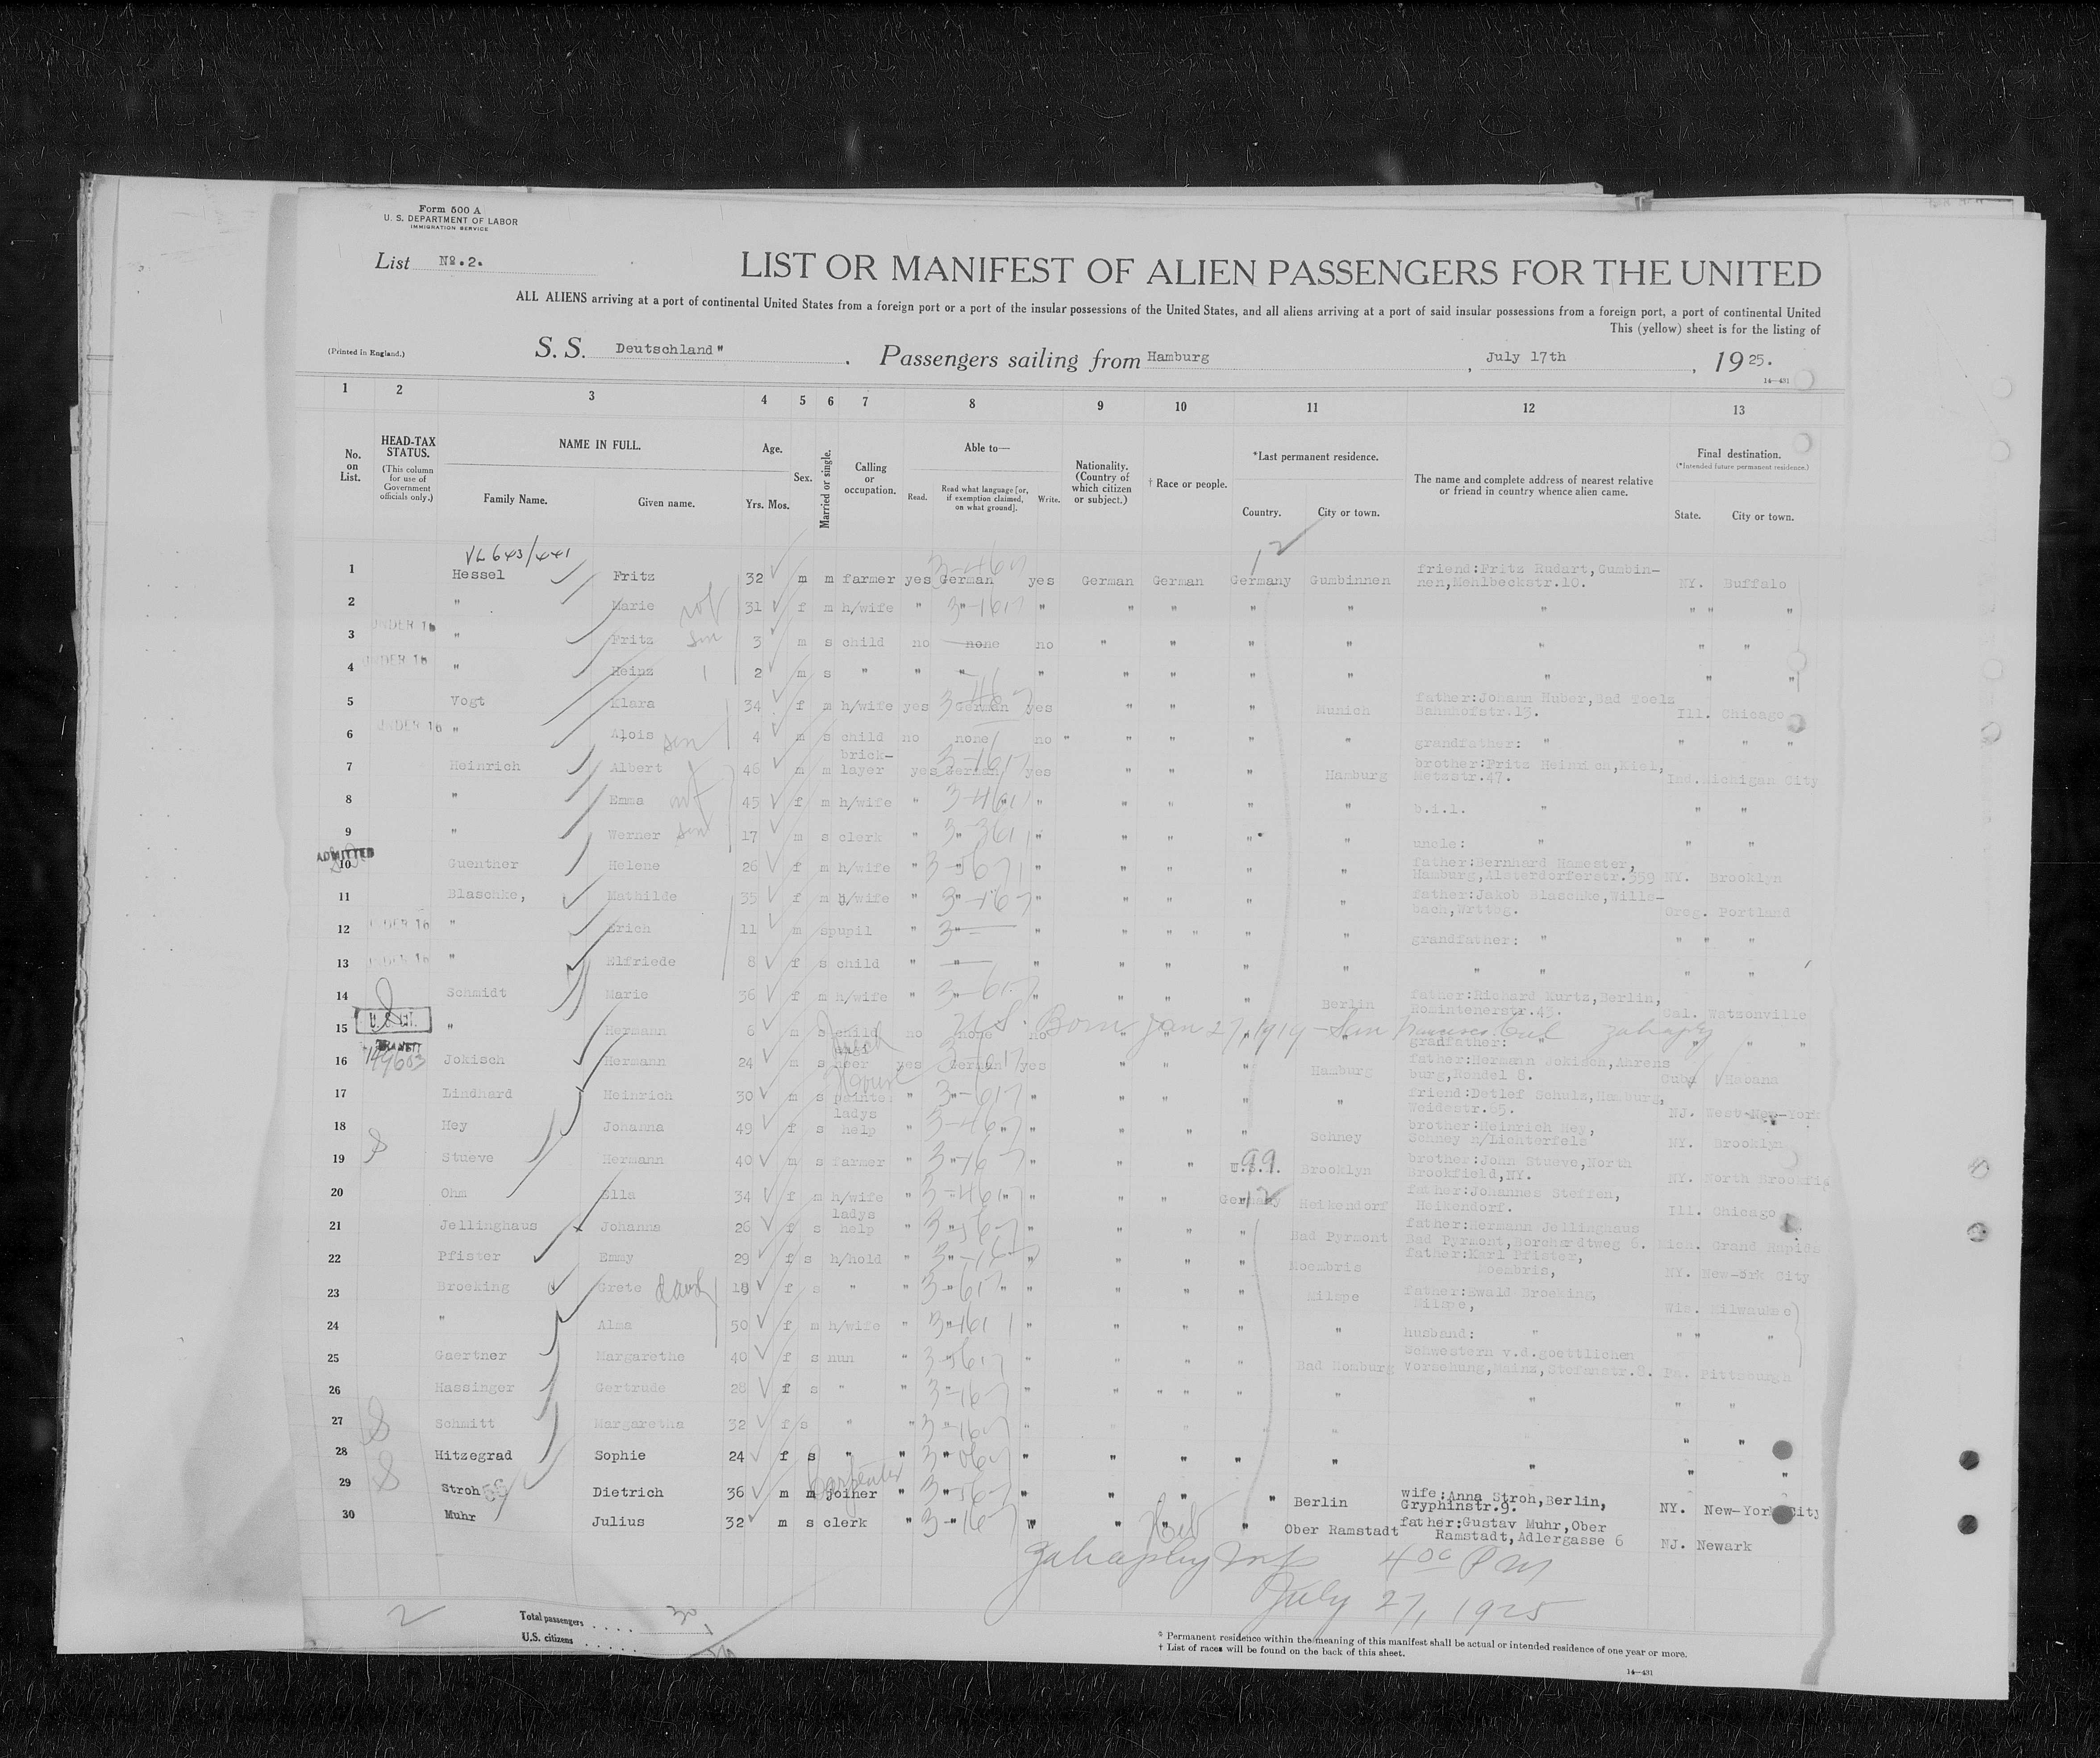 Form 500 A
U. S. DEPARTMENT OF LABOR
IMMIGRATION SERVICE
List No.2.
LIST OR MANIFEST OF ALIEN PASSENGERS FOR THE UNITED
ALL ALIENS arriving at a port of continental United States from a foreign port or a port of the insular possessions of the United States, and all aliens arriving at a port of said insular possessions from a foreign port, a port of continental United
This (yellow) sheet is for the listing of
(Printed in England.)
S. S. Deutschland" . Passengers sailing from Hamburg , July 17th , 1925.
14—431
1 2 3 4 5 6 7 8 9 10 11 12 13
No. on List.
HEAD-TAX STATUS.
(This column for use of Government officials only.)
NAME IN FULL.
Family Name. Given name.
Age.
Yrs. Mos.
Sex.
Married or single.
Calling or occupation.
Able to—
Read. Read what language [or, if exemption claimed, on what ground]. Write.
Nationality. (Country of which citizen or subject.)
† Race or people.
*Last permanent residence.
Country. City or town.
The name and complete address of nearest relative or friend in country whence alien came.
Final destination.
(*Intended future permanent residence.)
State. City or town.
1 Hessel Fritz 32 m m farmer yes German yes German German Germany Gumbinnen friend:Fritz Rudart,Gumbinnen,Mehlbeckstr.10. NY. Buffalo
2 " Marie 31 f m h/wife " " " " " " " " " " "
3 UNDER 16 " Fritz son 3 m s child no none no " " " " " " "
4 UNDER 16 " Heinz 2 m s " " " " " " " " " " "
5 Vogt Klara 34 f m h/wife yes German yes " " " Munich father:Johann Huber,Bad Toelz Bahnhofstr.13. Ill. Chicago
6 UNDER 16 " Alois son 4 m s child no none no " " " " " grandfather: " " " "
7 Heinrich Albert 46 m m brick-layer yes German yes " " " Hamburg brother:Fritz Heinrich,Kiel, Metzstr.47. Ind. Michigan City
8 " Emma 45 f m h/wife " " " " " " " b.i.l. " " "
9 " Werner son 17 m s clerk " " " " " " " uncle: " " "
ADMITTED
10 Guenther Helene 26 f m h/wife " " " " " " " father:Bernhard Hamester, Hamburg,Alsterdorferstr.359 NY. Brooklyn
11 Blaschke, Mathilde 35 f m h/wife " " " " " " " father:Jakob Blaschke,Willsbach,Wrttbg. Oreg. Portland
12 UNDER 16 " Erich 11 m s pupil " " " " " " " " grandfather: " " " "
13 UNDER 16 " Elfriede 8 f s child " " " " " " " " " " "
14 Schmidt Marie 36 f m h/wife " " " " " " Berlin father:Richard Kurtz,Berlin, Romintenerstr.43. Cal. Watsonville
15 " Hermann 6 m s child no none no U.S. Born Jan 27, 1919 - San Francisco Cal gradfather: " " " "
16 Jokisch Hermann 24 m s yes German yes " " " Hamburg father:Hermann Jokisch,Ahrensburg,Rondel 8. Cuba Habana
17 Lindhard Heinrich 30 m s painter " " " " " " " friend:Detlef Schulz,Hamburg, Weidestr.65. NJ. West-New-York
18 Hey Johanna 49 f s ladys help " " " " " " Schney brother:Heinrich Hey, Schney n/Lichterfels NY. Brooklyn
19 Stueve Hermann 40 m s farmer " " " " " U.S. Brooklyn brother:John Stueve,North Brookfield,NY. NY. North
20 Ohm Ella 34 f m h/wife " " " " " Germany Heikendorf father:Johannes Steffen, Heikendorf. Ill. Chicago
21 Jellinghaus Johanna 26 f s ladys help " " " " " " Bad Pyrmont father:Hermann Jellinghaus Bad Pyrmont,Borchardtweg 6. Mich. Grand Rapids
22 Pfister Emmy 29 f s h/hold " " " " " " Moembris father:Karl Pfister, Moembris, NY. New-York City
23 Brocking Grete daugh 18 f s " " " " " " " Milspe father:Ewald Brocking, Milspe, Wis. Milwaukee
24 " Alma 50 f m h/wife " " " " " " " husband: " " " "
25 Gaertner Margarethe 40 f s nun " " " " " " Bad Homburg Schwestern v.d.goettlichen Vorsehung,Mainz,Stefanstr.8. Pa. Pittsburgh
26 Hassinger Gertrude 28 f s " " " " " " " " " " " "
27 Schmitt Margaretha 32 f s " " " " " " " " " "
28 Hitzegrad Sophie 24 f s " " " " " " " " " " "
29 Stroh Dietrich 36 m m joiner carpenter " " " " " " Berlin wife:Anna Stroh,Berlin, Gryphinstr.9. NY. New-York City
30 Muhr Julius 32 m s clerk " " " " " " Ober Ramstadt father:Gustav Muhr,Ober Ramstadt,Adlergasse 6 NJ. Newark
4 00 PM
July 27, 1925
2
Total passengers . . . . 30
U.S. citizens . . . . .
* Permanent residence within the meaning of this manifest shall be actual or intended residence of one year or more.
† List of races will be found on the back of this sheet.
14—431